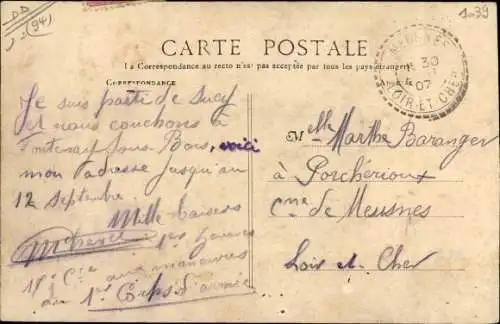 DD
(94)
1039
CARTE POSTALE
La Correspondance au recto n'est pas acceptée par tous les pays étrangers
CORRESPONDANCE
MEUSNES
30
07
LOIR-ET-CHER
Je suis parti de Sucy
et nous couchons à
Fontenay sous Bois, voici
mon adresse jusqu'au
12 Septembre.
Mille baisers
18e Cie aux manœuvres
du 1er Corps d'armée
Melle Marthe Baranger
à Porchérioux
Cne de Meusnes
Loir et Cher